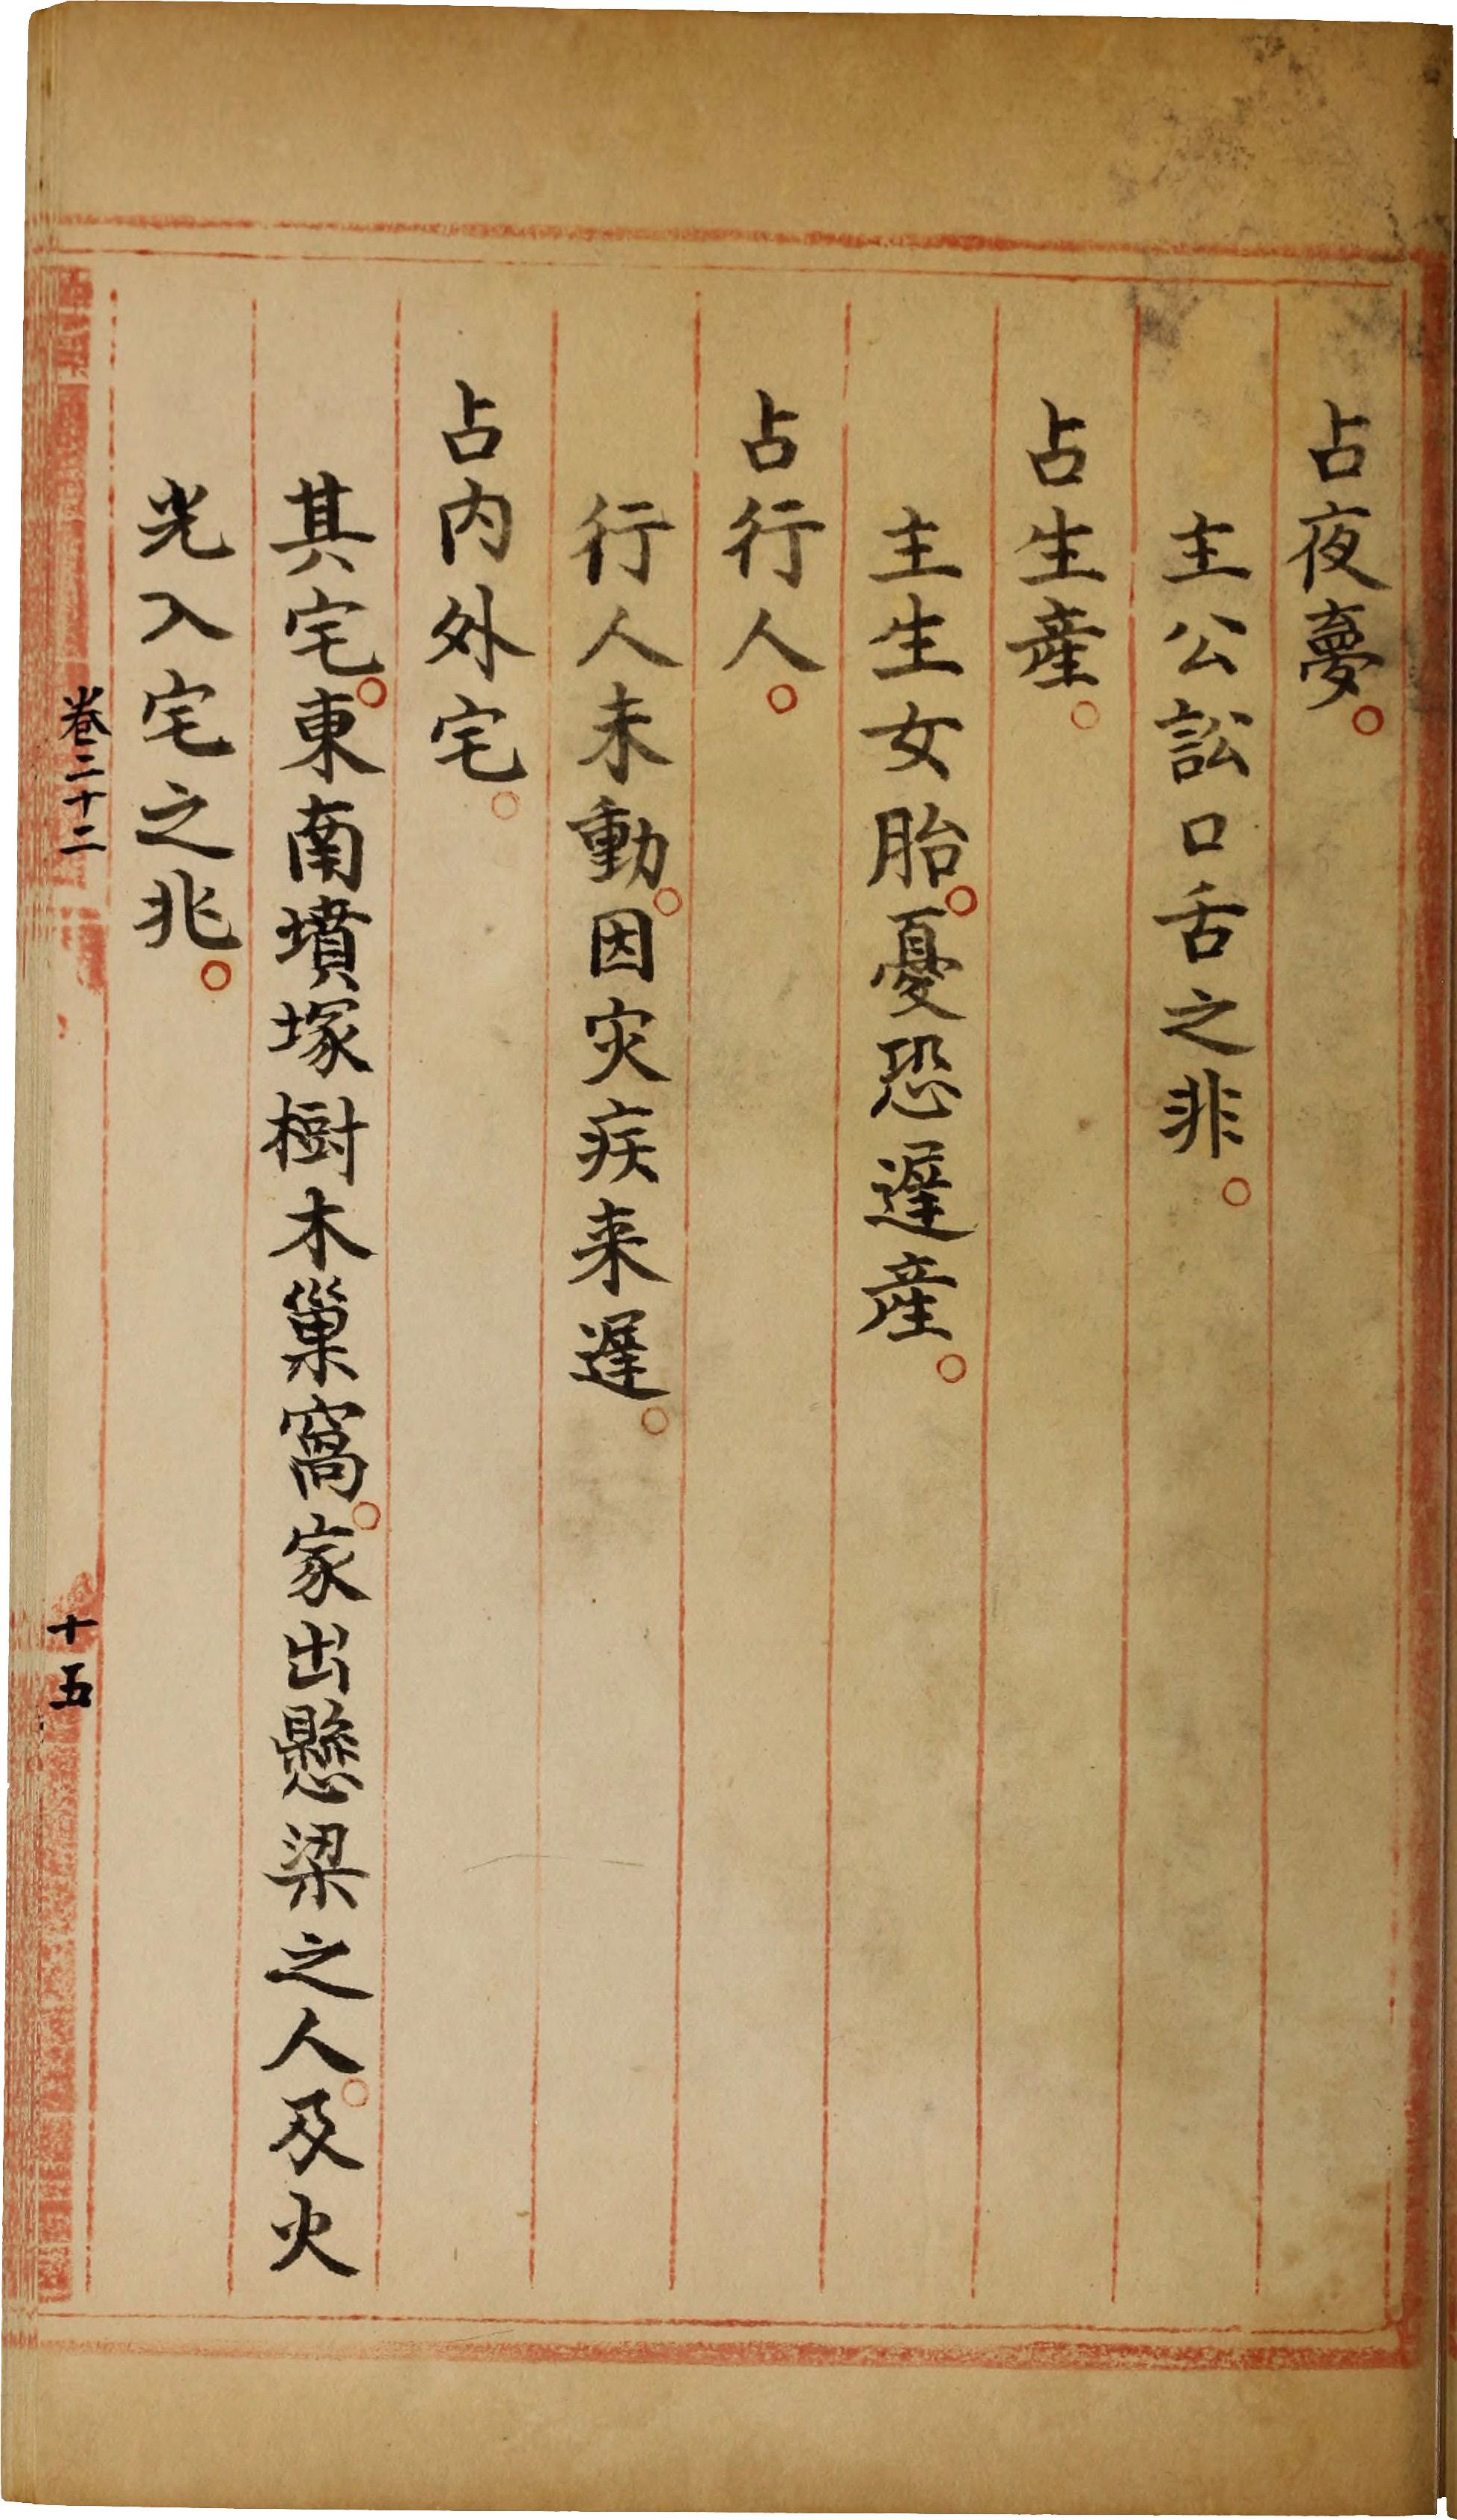 占夜夢。
主公訟口舌之非。
占生產。
主生女胎。憂恐遲產。
占行人。
行人未動。因灾疾来遲。
占内外宅。
其宅。東南墳塚樹木巢窩。家出懸梁之人。及火
光入宅之兆。
卷二十二
十五